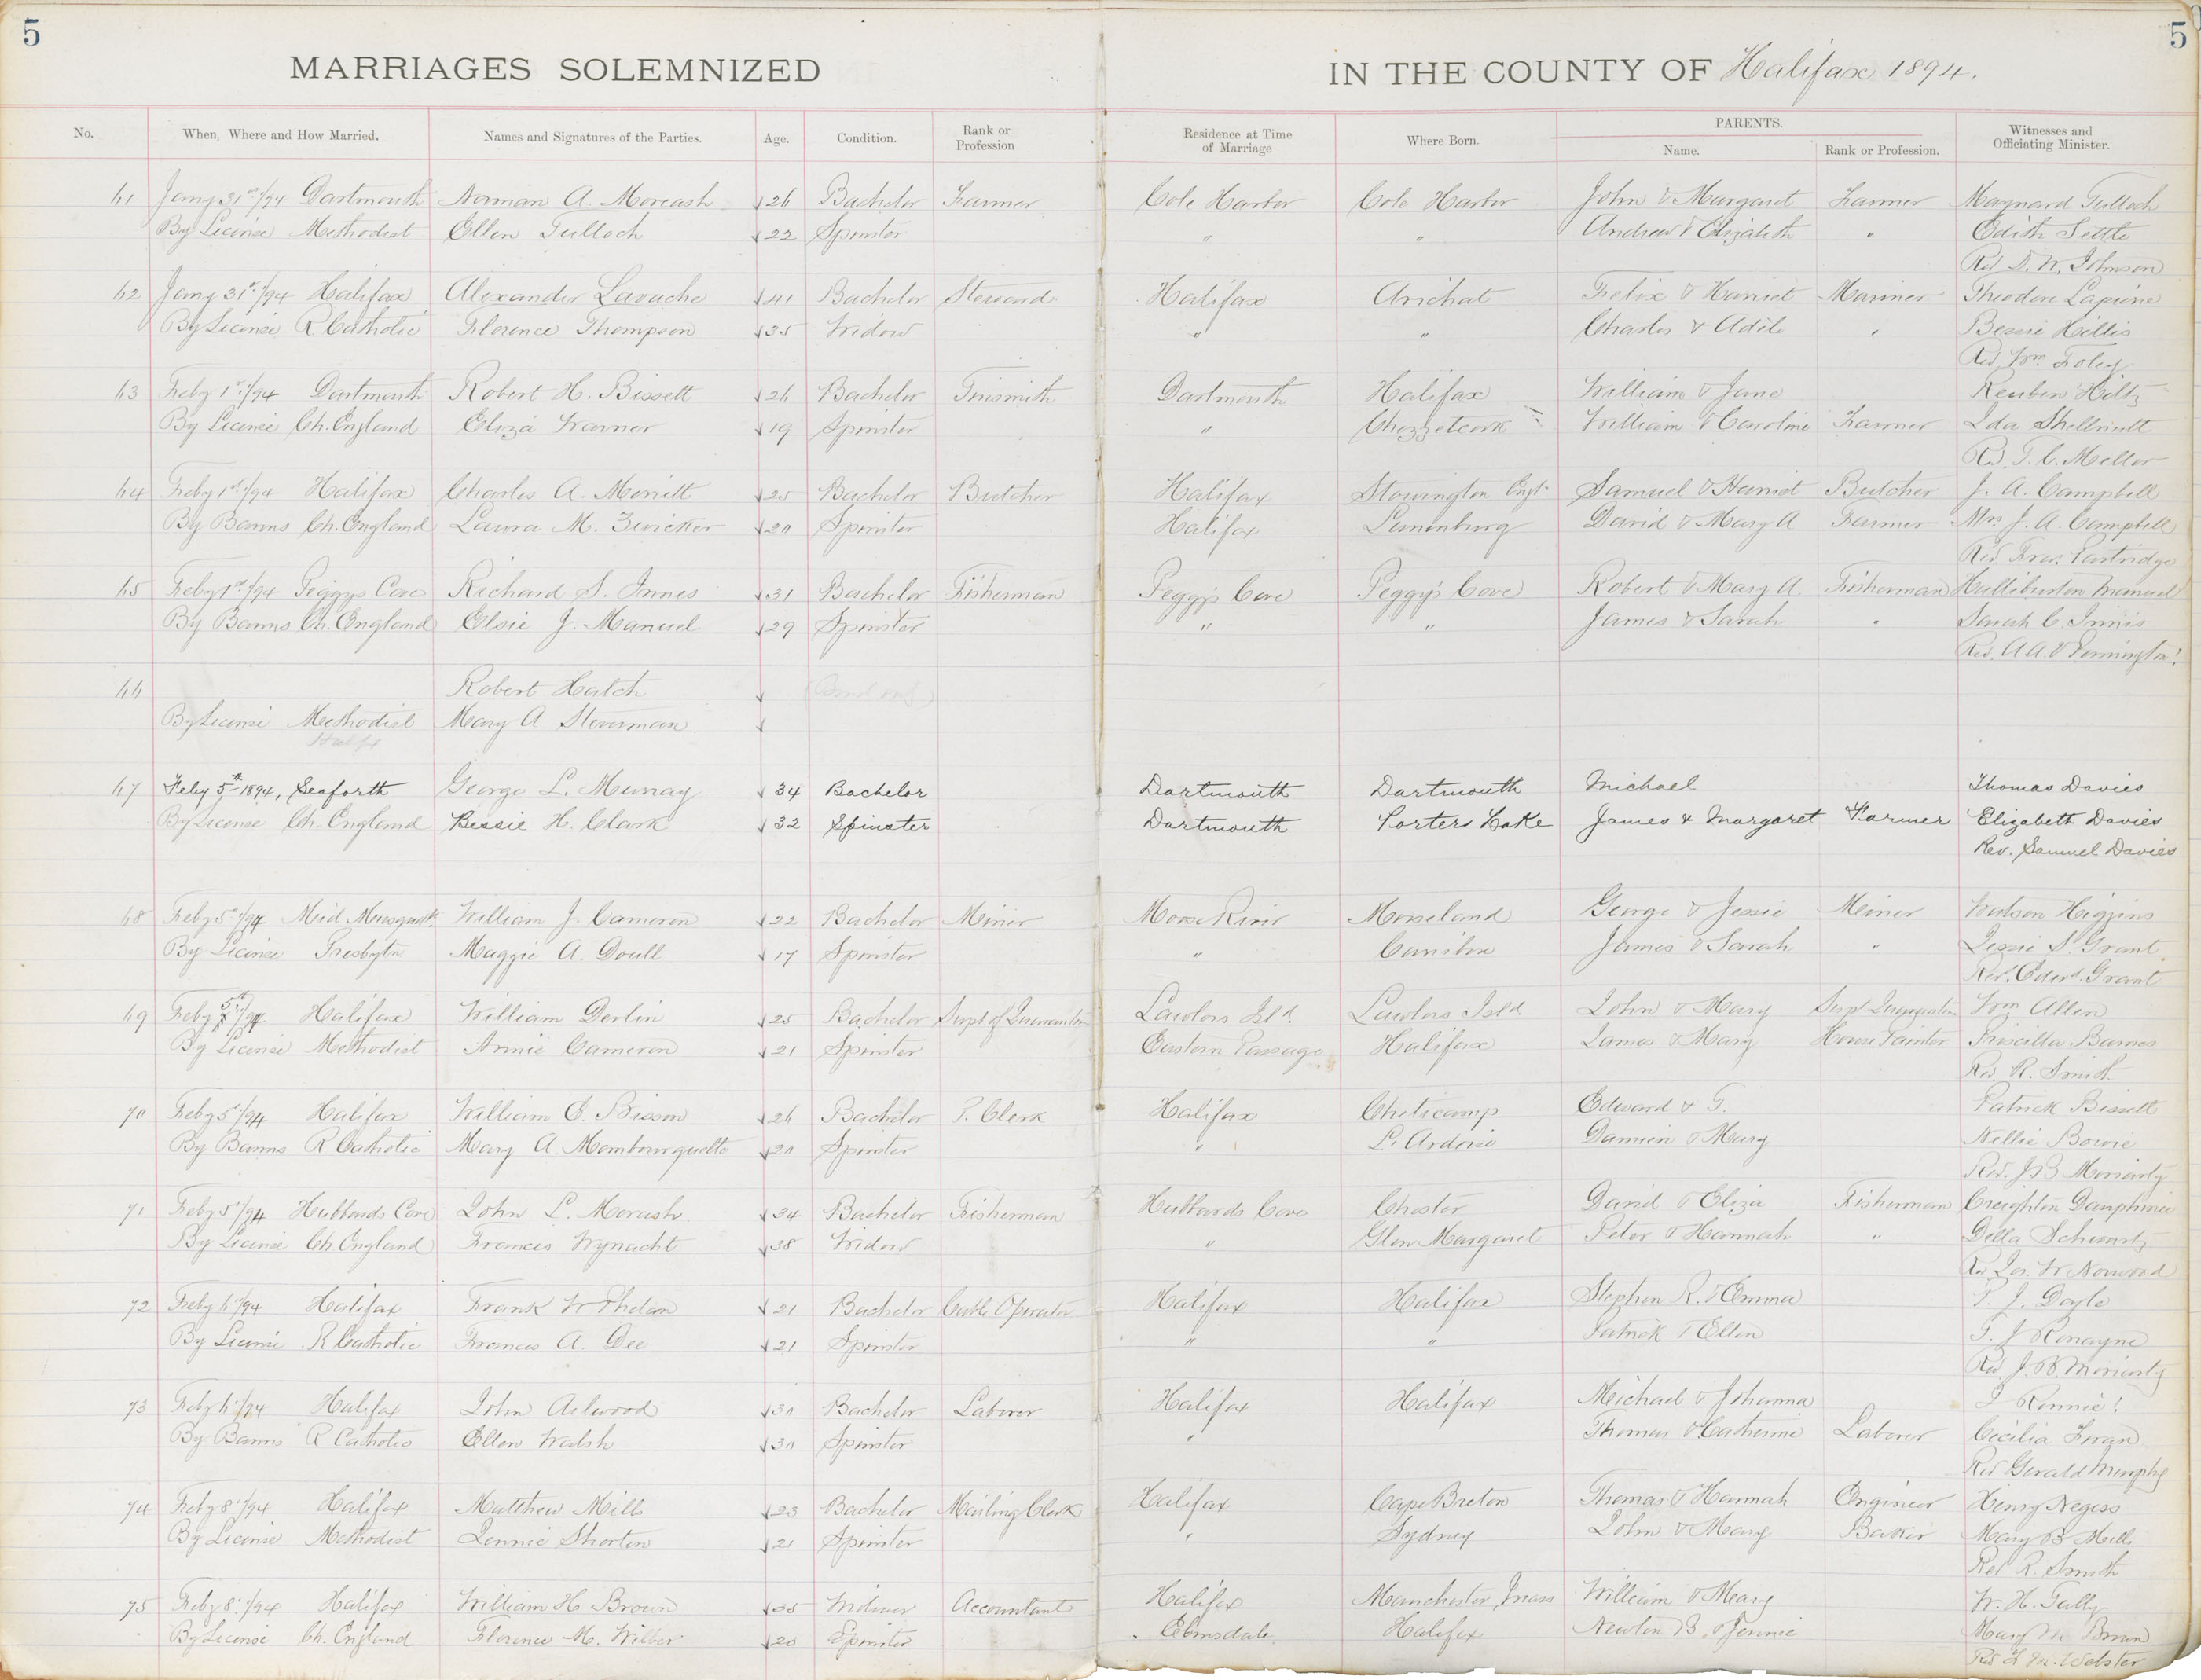 5
5
MARRIAGES SOLEMNIZED
IN THE COUNTY OF Halifax 1894.
No. When, Where and How Married. Names and Signatures of the Parties. Age. Condition. Rank or Profession Residence at Time of Marriage Where Born. PARENTS. Name. Rank or Profession. Witnesses and Officiating Minister.
61 Jany 31st/94 Dartmouth Norman A. Morash 26 Bachelor Farmer Cole Harbor Cole Harbor John & Margaret Farmer Maynard Tulloch
By License Methodist Ellen Tulloch 22 Spinster " " Andrew & Elizabeth " Edith Settle
Rev D. W. Johnson
62 Jany 31st/94 Halifax Alexander Lavache 41 Bachelor Steward Halifax Arichat Felix & Harriet Mariner Theodore Lapierre
By License R Catholic Florence Thompson 35 Widow " " Charles & Adèle " Bessie Hillis
Rev Wm Foley
63 Feby 1st/94 Dartmouth Robert H. Bissett 26 Bachelor Tinsmith Dartmouth Halifax William & Jane Reuben Hiltz
By License Ch. England Eliza Warner 19 Spinster " Chezzetcook William & Caroline Farmer Ida Shellnutt
Rev. T. C. Mellor
64 Feby 1st/94 Halifax Charles A. Merritt 25 Bachelor Butcher Halifax Stowington Engd. Samuel & Harriet Butcher J. A. Campbell
By Banns Ch. England Laura M. Zwicker 20 Spinster Halifax Lunenburg David & Mary A Farmer Mrs J. A. Campbell
Rev Fras. Partridge
65 Feby 1st/94 Peggys Cove Richard S. Innes 31 Bachelor Fisherman Peggy's Cove Peggy's Cove Robert & Mary A. Fisherman Halliburton Manuel
By Banns Ch. England Elsie J. Manuel 29 Spinster " " James & Sarah " Sarah C. Innis
Rev. A A.
66 Robert Hatch
By License Methodist Mary A Steverman
Halifx
67 Feby 5th 1894, Seaforth George L. Murray 34 Bachelor Dartmouth Dartmouth Michael Thomas Davies
By License Ch. England Bessie H. Clark 32 Spinster Dartmouth Porters Lake James & Margaret Farmer Elizabeth Davies
Rev. Samuel Davies
68 Feby 5th/94 Mid Musquodt. William J. Cameron 22 Bachelor Miner Moose River Mooseland George & Jessie Miner Watson Higgins
By License Presbytn Maggie A. Doull 17 Spinster " Caribou James & Sarah " Jessie S. Grant
Rev. Edwd. Grant
69 Feby 5th/94 Halifax William Devlin 25 Bachelor Supt of Quarantine Lawlors Isld. Lawlors Isld John & Mary Supt Quarantine Wm Allen
By License Methodist Annie Cameron 21 Spinster Eastern Passage Halifax James & Mary House Painter Priscilla Barnes
Rev. R. Smith
70 Feby 5th/94 Halifax William E. Bisson 26 Bachelor P. Clerk Halifax Cheticamp Edward & T. Patrick Bissett
By Banns R Catholic Mary A. Mombourquette 20 Spinster " L'Ardoise Damien & Mary Nellie Bowie
Rev. J B Moriarty
71 Feby 5th/94 Hubbards Cove John L. Morash 34 Bachelor Fisherman Hubbards Cove Chester David & Eliza Fisherman Creighton Dauphinee
By License Ch England Frances Wynacht 38 Widow " Glen Margaret Peter & Hannah " Della Schwartz
Rev Jos. W Norwood
72 Feby 6th/94 Halifax Frank W Phelan 21 Bachelor Cable Operator Halifax Halifax Stephen R. & Emma P. J. Doyle
By License R Catholic Frances A. Dee 21 Spinster " " Patrick & Ellen T. J Ronayne
Rev J. B. Moriarty
73 Feby 6th/94 Halifax John Aelwood 30 Bachelor Laborer Halifax Halifax Michael & Johanna J Rennie
By Banns R Catholic Ellen Walsh 30 Spinster " Thomas & Catherine Laborer Cecilia Foran
Rev Gerald Murphy
74 Feby 8th/94 Halifax Matthew Mills 23 Bachelor Mailing Clerk Halifax Cape Breton Thomas & Hannah Engineer Henry Negess
By License Methodist Jennie Shorten 21 Spinster " Sydney John & Mary Baker Mary B. Mills
Rev R. Smith
75 Feby 8th/94 Halifax William H Brown 35 Widower Accountant Halifax Manchester Mass William & Mary W. H. Tully
By License Ch. England Florence M. Wilber 20 Spinster Elmsdale Halifax Newton B. & Jennie Mary M Brown
Rev F M. Webster